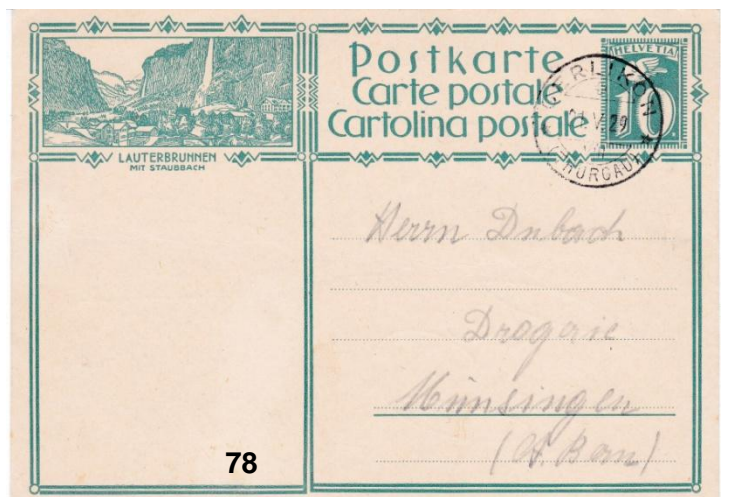 LAUTERBRUNNEN
MIT STAUBBACH
Postkarte
Carte postale
Cartolina postale
HELVETIA
10
(THURGAU)
Herrn Dubach
Drogerie
Münsingen
(Kt. Bern)
78